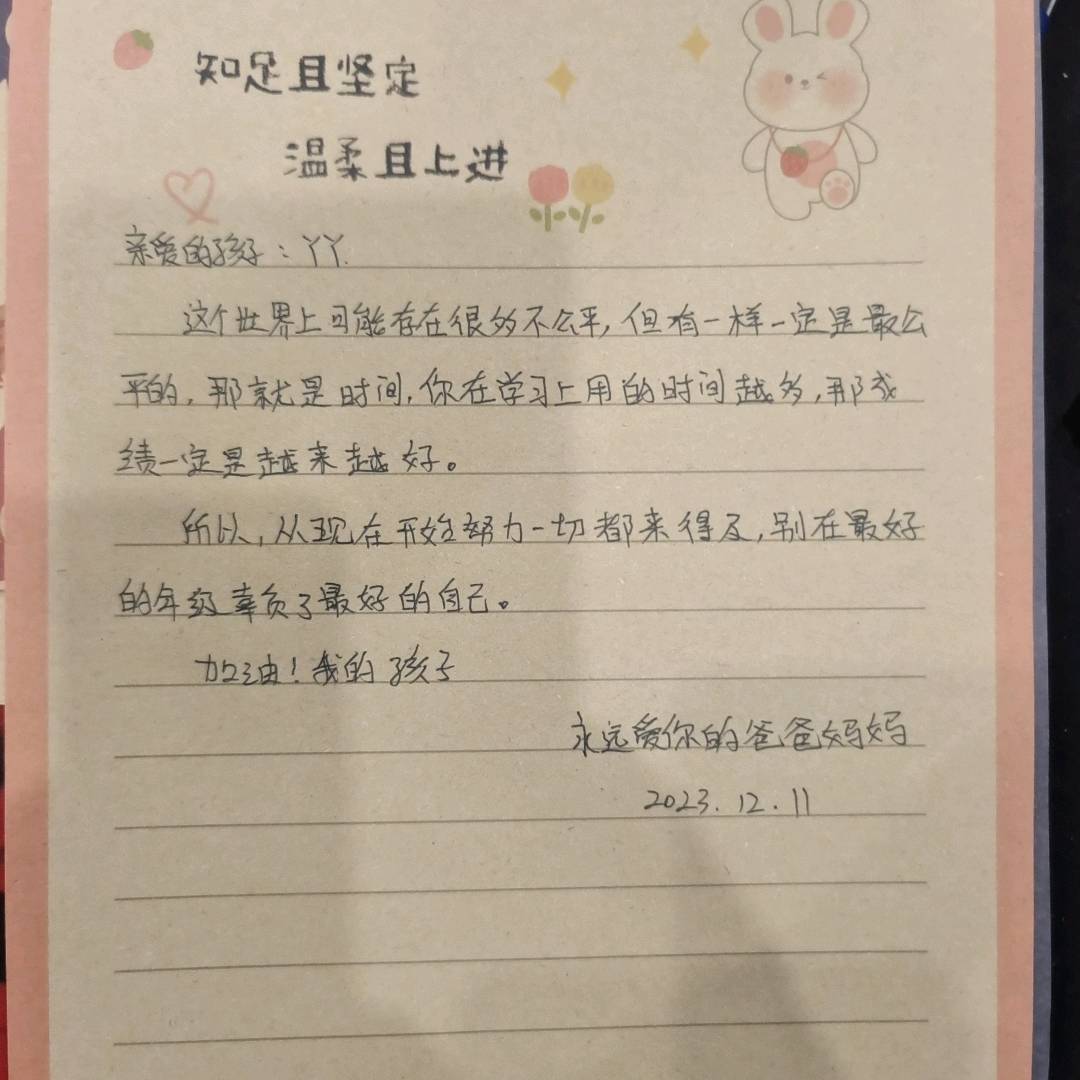 知足且坚定
温柔且上进
亲爱的孩子：丫丫.
这个世界上可能存在很多不公平,但有一样一定是最公
平的,那就是时间,你在学习上用的时间越多,那成
绩一定是越来越好。
所以,从现在开始努力一切都来得及,别在最好
的年级辜负了最好的自己。
加油!我的孩子
永远爱你的爸爸妈妈
2023.12.11